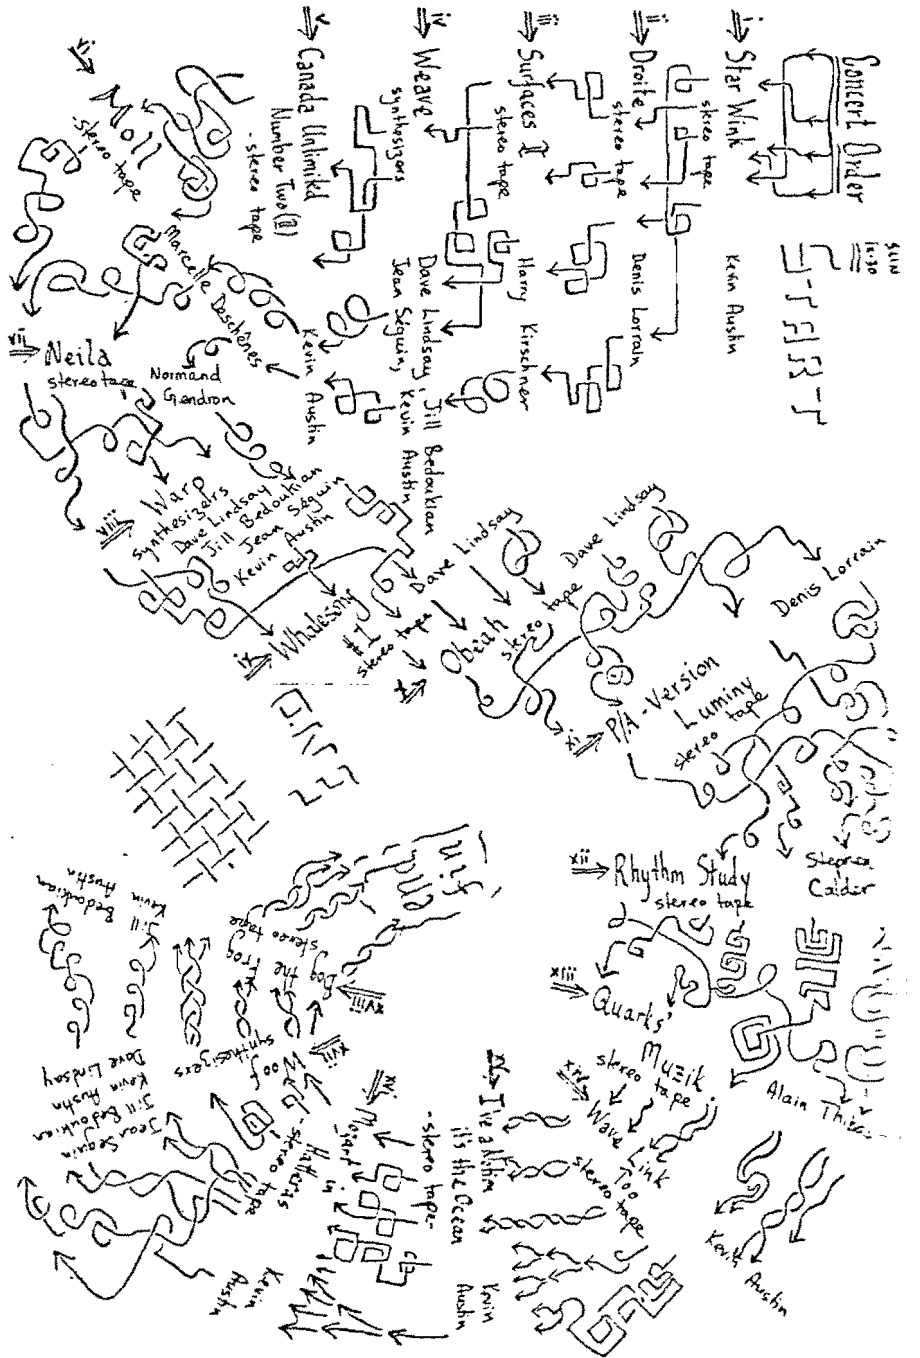 Concert Order
START
i
Star Wink
stereo tape
Kevin Austin
ii
Droite
stereo tape
Denis Lorrain
iii
Surfaces II
stereo tape
Harry Kirschner
iv
Weave
synthesizers
Dave Lindsay, Jill Bedoukian
Jean Séguin, Kevin Austin
v
Canada Unlimited
Number Two (II)
- stereo tape
Kevin Austin
vi
Moll
- stereo tape
Marcelle Deschênes
vii
Neila
stereo tape
Normand
Gendron
viii
Warp
synthesizers
Dave Lindsay
Jill Bedoukian
Jean Séguin
Kevin Austin
ix
Whalesong
#1
stereo tape
Dave Lindsay
x
Obeah
stereo tape
Dave Lindsay
xi
P/A-Version
Luminy
stereo tape
Denis Lorrain
xii
Rhythm Study
stereo tape
Stephen
Calder
xiii
Quarks'
Muzik
stereo tape
Alain Thi
xiv
Wave Link
Too
stereo tape
Kevin Austin
xv
I've a Notion
it's the Ocean
- stereo tape -
Kevin
Austin
xvi
Night in
Hatteras
- stereo tape
Kevin
Austin
xvii
Woof
synthesizers
Jean Seguin
Jill Bedoukian
Kevin Austin
Dave Lindsay
xviii
Dog the Frog
stereo tape
Jill
Bedoukian
Kevin Austin